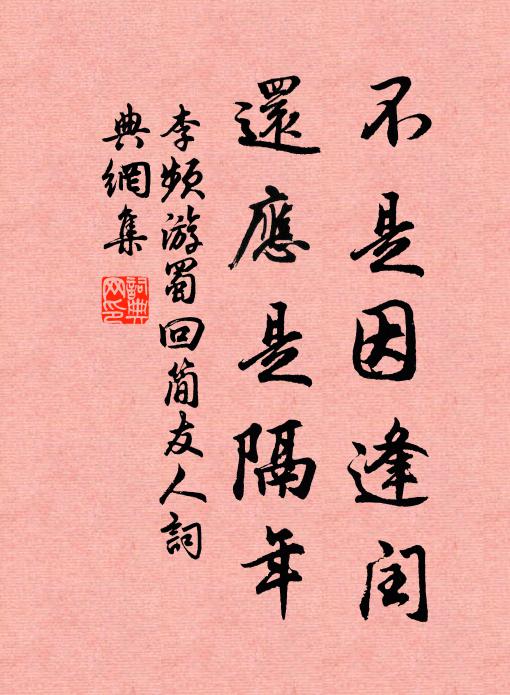 不是因逢閏
還應是隔年
李頻游蜀回簡友人詞
典網集
詞典
网印